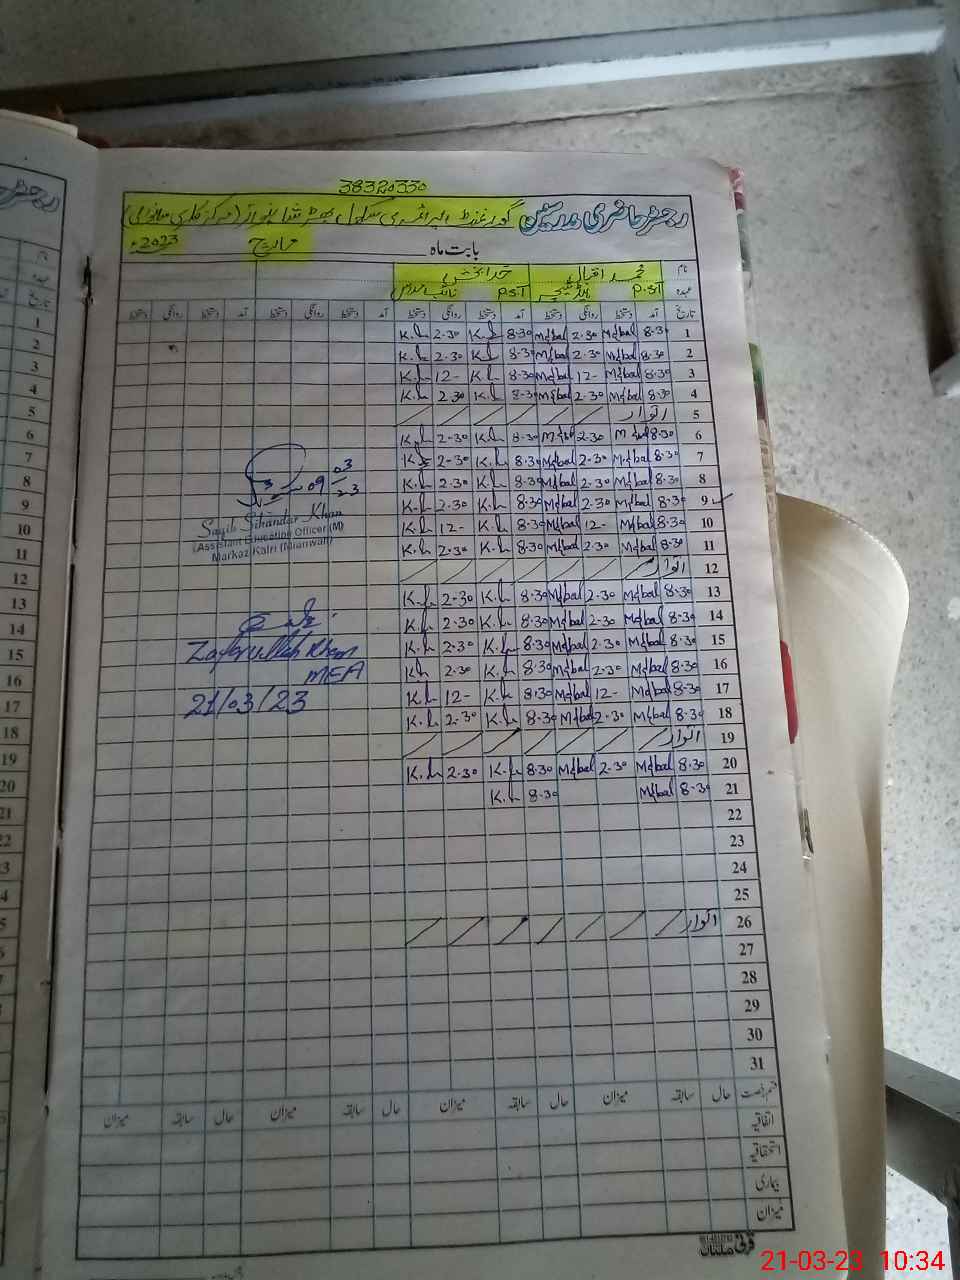 38320330
رجسٹر حاضری مدرسین گورنمنٹ پرائمری سکول
بابت ماہ مارچ 2023ء
نام محمد اقبال خدا بخش
عہدہ P.S.T ہیڈ ٹیچر P.S.T نائب مدرس
تاریخ آمد دستخط روانگی دستخط آمد دستخط روانگی دستخط آمد دستخط روانگی دستخط آمد دستخط روانگی دستخط
1 8.30 M.Iqbal 2.30 M.Iqbal 8.30 K.b 2.30 K.b
2 8.30 M.Iqbal 2.30 M.Iqbal 8.30 K.b 2.30 K.b
3 8.30 M.Iqbal 12- M.Iqbal 8.30 K.b 12- K.b
4 8.30 M.Iqbal 2.30 M.Iqbal 8.30 K.b 2.30 K.b
5 اتوار
6 8.30 M.Iqbal 2.30 M.Iqbal 8.30 K.b 2.30 K.b
7 8.30 M.Iqbal 2.30 M.Iqbal 8.30 K.b 2.30 K.b
8 8.30 M.Iqbal 2.30 M.Iqbal 8.30 K.b 2.30 K.b
9 8.30 M.Iqbal 2.30 M.Iqbal 8.30 K.b 2.30 K.b
10 8.30 M.Iqbal 12- M.Iqbal 8.30 K.b 12- K.b
11 8.30 M.Iqbal 2.30 M.Iqbal 8.30 K.b 2.30 K.b
12 اتوار
13 8.30 M.Iqbal 2.30 M.Iqbal 8.30 K.b 2.30 K.b
14 8.30 M.Iqbal 2.30 M.Iqbal 8.30 K.b 2.30 K.b
15 8.30 M.Iqbal 2.30 M.Iqbal 8.30 K.b 2.30 K.b
16 8.30 M.Iqbal 2.30 M.Iqbal 8.30 K.b 2.30 K.b
17 8.30 M.Iqbal 12- M.Iqbal 8.30 K.b 12- K.b
18 8.30 M.Iqbal 2.30 M.Iqbal 8.30 K.b 2.30 K.b
19 اتوار
20 8.30 M.Iqbal 2.30 M.Iqbal 8.30 K.b 2.30 K.b
21 8.30 M.Iqbal 8.30 K.b
22
23
24
25
26 اتوار
27
28
29
30
31
09 03 23
Saqib Sikandar Khan
(Assistant Education Officer (M)
Markaz Kalri (Mianwali)
Zafarullah Khan
MEA
21/03/23
قسم رخصت حال سابقہ میزان حال سابقہ میزان حال سابقہ میزان حال سابقہ میزان
اتفاقیہ
استحقاقیہ
بیماری
میزان
21-03-23 10:34